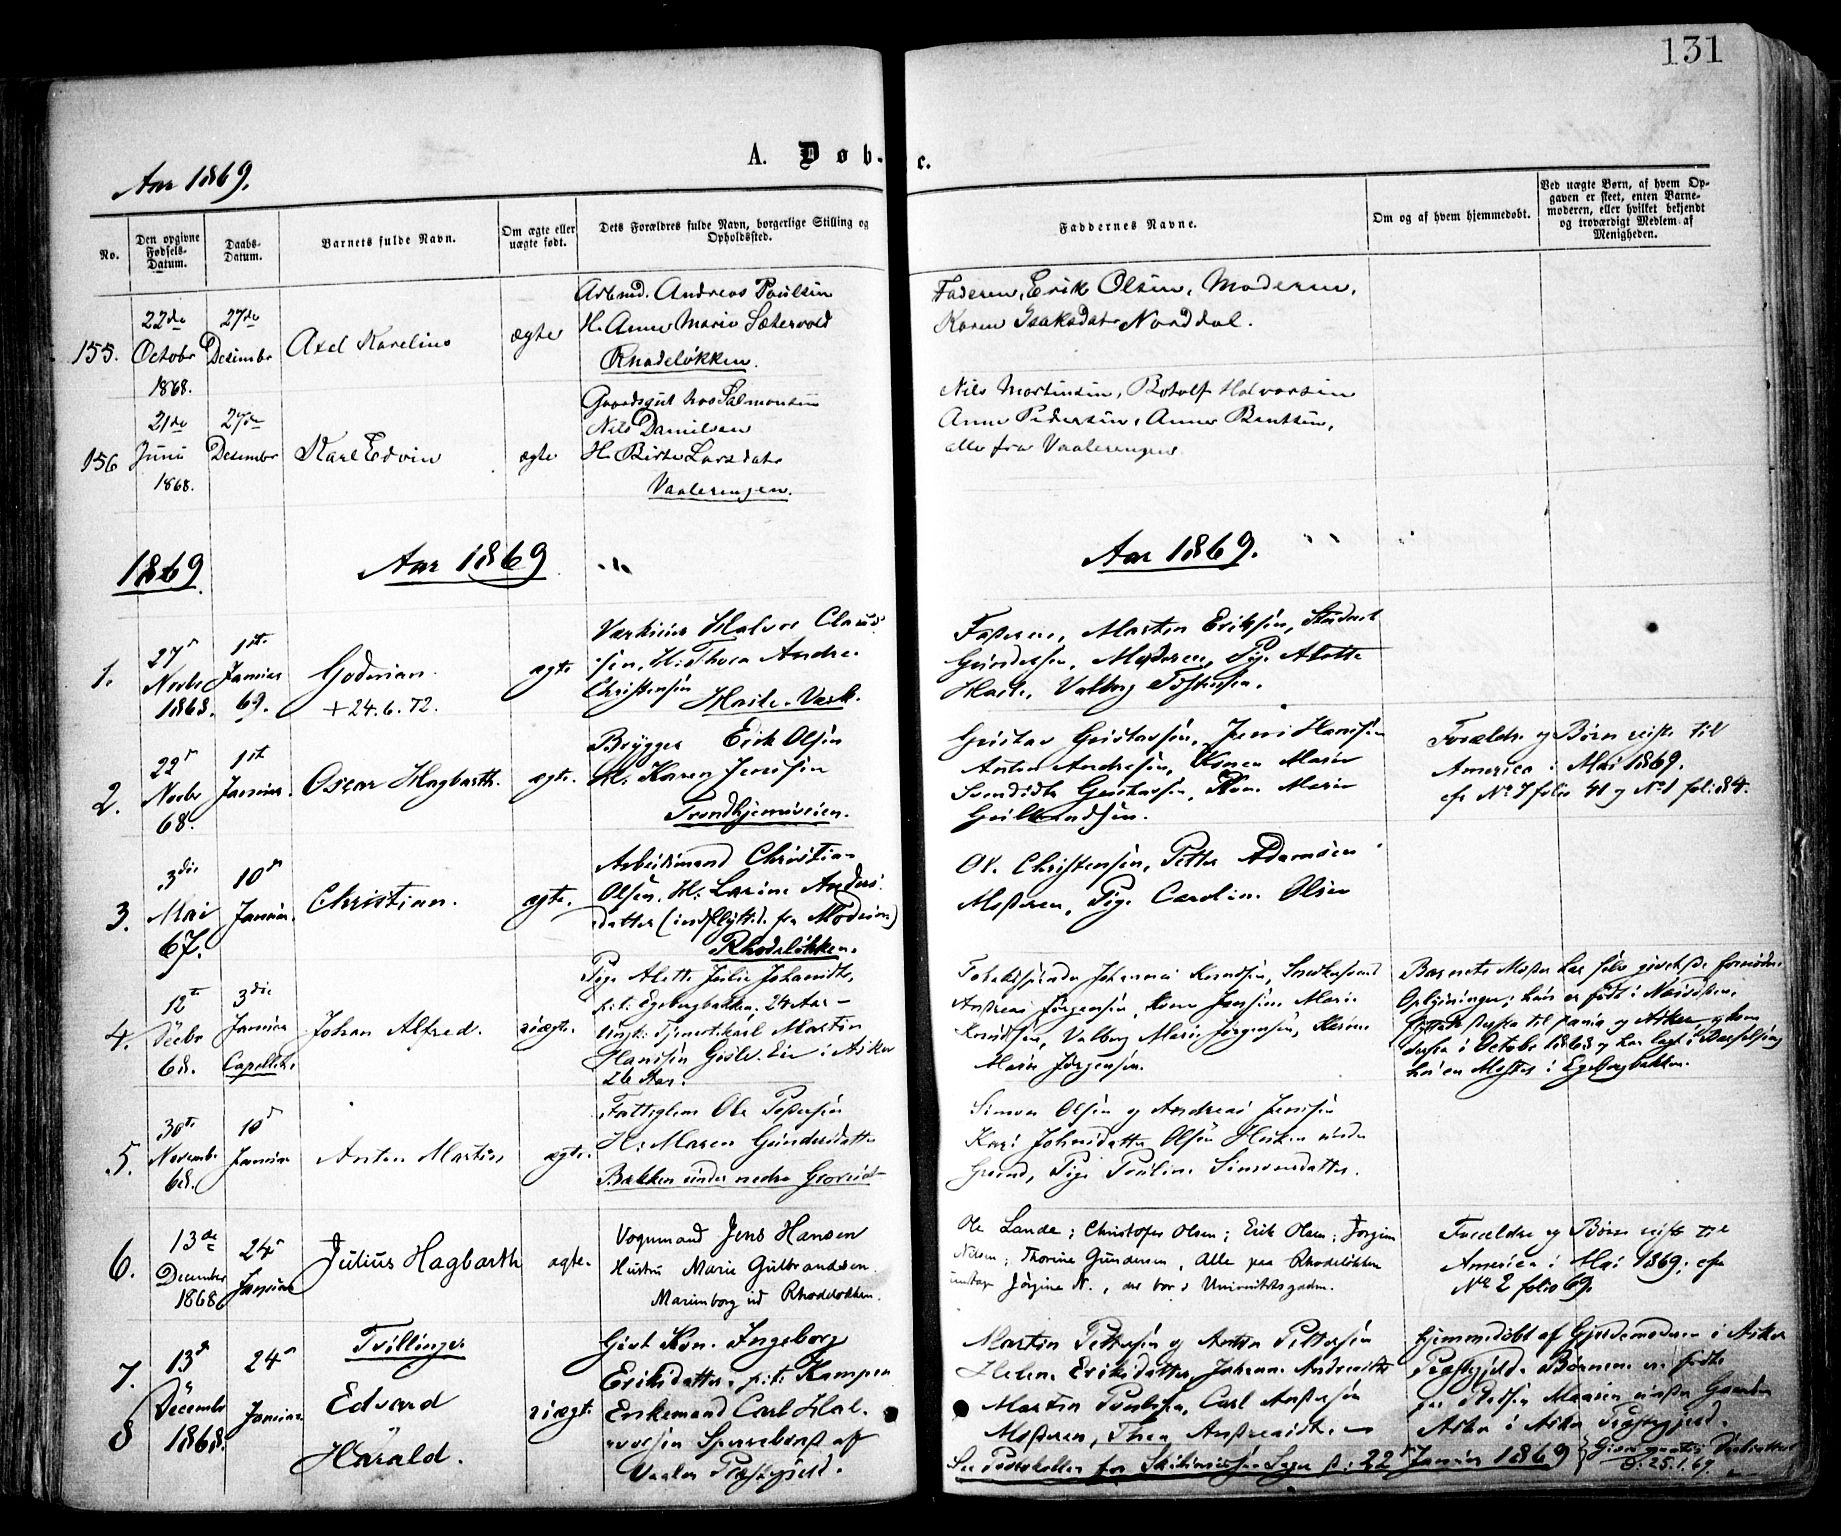 131
A. Døbte.
Aar 1869.
No.
Den opgivne Fødsels-Datum.
Daabs-Datum.
Barnets fulde Navn.
Om ægte eller uægte født.
Dets Forældres fulde Navn, borgerlige Stilling og Opholdssted.
Faddernes Navne.
Om og af hvem hjemmedøbt.
Ved uægte Børn, af hvem Op-
gaven er skeet, enten Barne-
moderen, eller hvilket bekjendt
og troværdigt Medlem af
Menigheden.
155.
22de
Octobr
1868.
27de
Desimbr
Axel Karelius
ægte
Arbmd. Andreas Paulsen
H. Anne Marie Sætervold
Rhodeløkken.
Faderen, Erik Olsen, Moderen,
Karen Isaksdatr Norddal.
156
21de
Juni
1868.
27de
Desember
Karl Edvin
ægte
Gaardsgut hos Salmonsen
Nils Danielsen
H. Birte Larsdatr
Vaalerengen.
Nils Mortensen, Botolf Halvorsen
Anne Pedersen, Anne Bentsen,
alle fra Vaalerengen
1869
Aar 1869
Aar 1869.
1.
27
Novbr
1868.
1ste
Januar
69.
Goderian.
+ 24.6.72.
ægte
Halvor Claus
sen, H. Thora Andre
Christensen
Hasle-Værk.
Faderen, Marten Eriksen,
Gundersen, Moderen, Pige Alette
Hasle, Valborg
2.
22
Novbr
68.
1ste
Januar.
Oscar Hagbarth.
ægte.
Brygger Erik Olsen
H. Karen Jensen
Trondhjemsveien.
Gustav Gustavsen, Jens Hansen
Anton Andresen, Karen Marie
Gustavsen, Kone Marie
Gulbrandsen.
Forældre og Børn reiste til
America i Mai 1869.
cfr No 7 folio 41 og No 1 fol: 84.
3.
3die
Mai
67.
10de
Januar
Christian.
ægte.
Arbeidsmand Christian
Olsen, H. Larine Anders-
datter (indflyttet fra Modum)
Rhodeløkken.
Ol. Christensen, Petter Adamsen
Mosteren, Pige Caroline Olsen
4.
12te
Decbr
68.
3die
Januar
Capellet.
Johan Alfred.
uægte.
Pige Alette Julie Johannesdtr,
p.t. Egebergbakken, 24 Aar -
Ungk. Tjenestekarl Martin
Hansen i Asker
26 Aar.
Johannes Knudsen,
Andreas Jørgensen, Kone Marie
Knudsen, Valborg Marie Jørgensen,
Marie Jørgensen.
Barnets Moder har selv givet de fornødne
Oplysninger; hun er født i
til og Asker, og kom
i Octobr 1868 og har lagt i Barselseng
hos en Moster i Egebergbakken.
5.
30te
Novembr
68.
10de
Januar
Anton Martin
ægte.
Fattiglem Ole Pedersen
H. Maren Gundersdatter
Bakken under nedre
Simon Olsen og Andreas Jensen
Kari Johnsdatter Olsen under
Pige Pauline Simonsdatter.
6.
13de
December
1868
24
Januar
Julius Hagbarth
ægte.
Vognmand Jens Hansen
Hustru Marie Gulbrandsen.
Marienborg ved Rhodeløkken.
Ole Lande; Christofer Olsen; Erik Olsen; Jørgine
Nilsen; Thorine Gundersen, Alle paa Rhodeløkken
undtagen Jørgine N., der bor i Universitetsgaden.
Forældre og Børn reiste til
America i Mai 1869; cfr
No 2 folio 69.
7.
8
13de
Decembr
1868.
24
Januar
Tvillinger
Edvard
Harald.
uægte
Gift Kone Ingeborg
Eriksdatter p.t. Kampen
Enkemand Carl Hal-
vorsen af
Vaaler Præstgjeld.
Martin Pettersen og Anton Pettersen
Helene Eriksdatter, Johanne Andreasdtr
Martin Poulsen, Carl Andersen
Mosteren, Thea Andreasdtr.
Hjemmedøbt af Gjordemoderen i Asker
Præstegjeld. Børnene er født
Asker i Asker Præstegjeld.
22 Januar 1869
25.1.69.